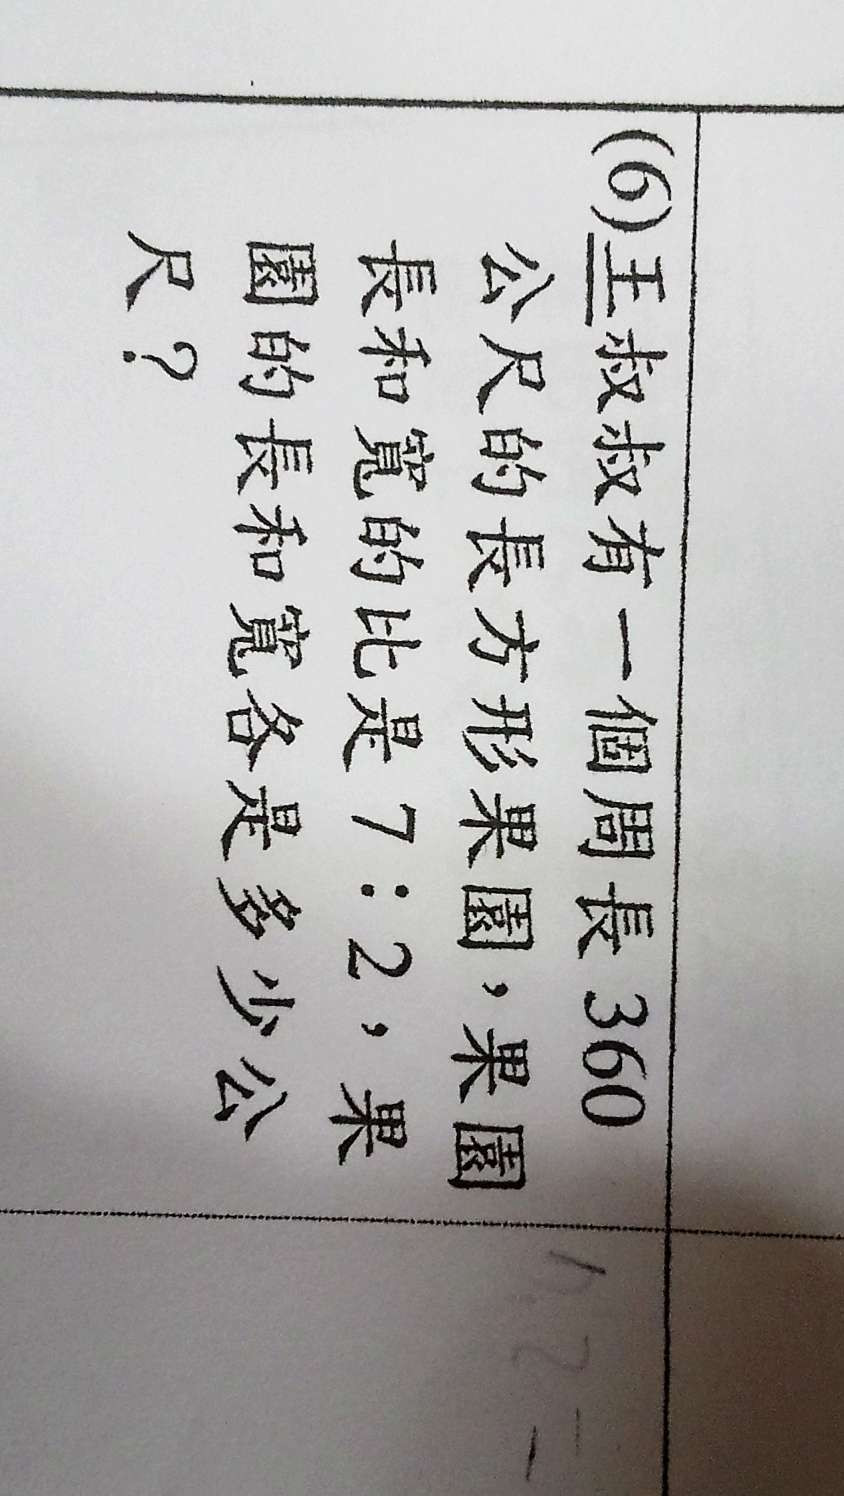 (6)王叔叔有一個周長 360
公尺的長方形果園，果園
長和寬的比是 7：2，果
園的長和寬各是多少公
尺？